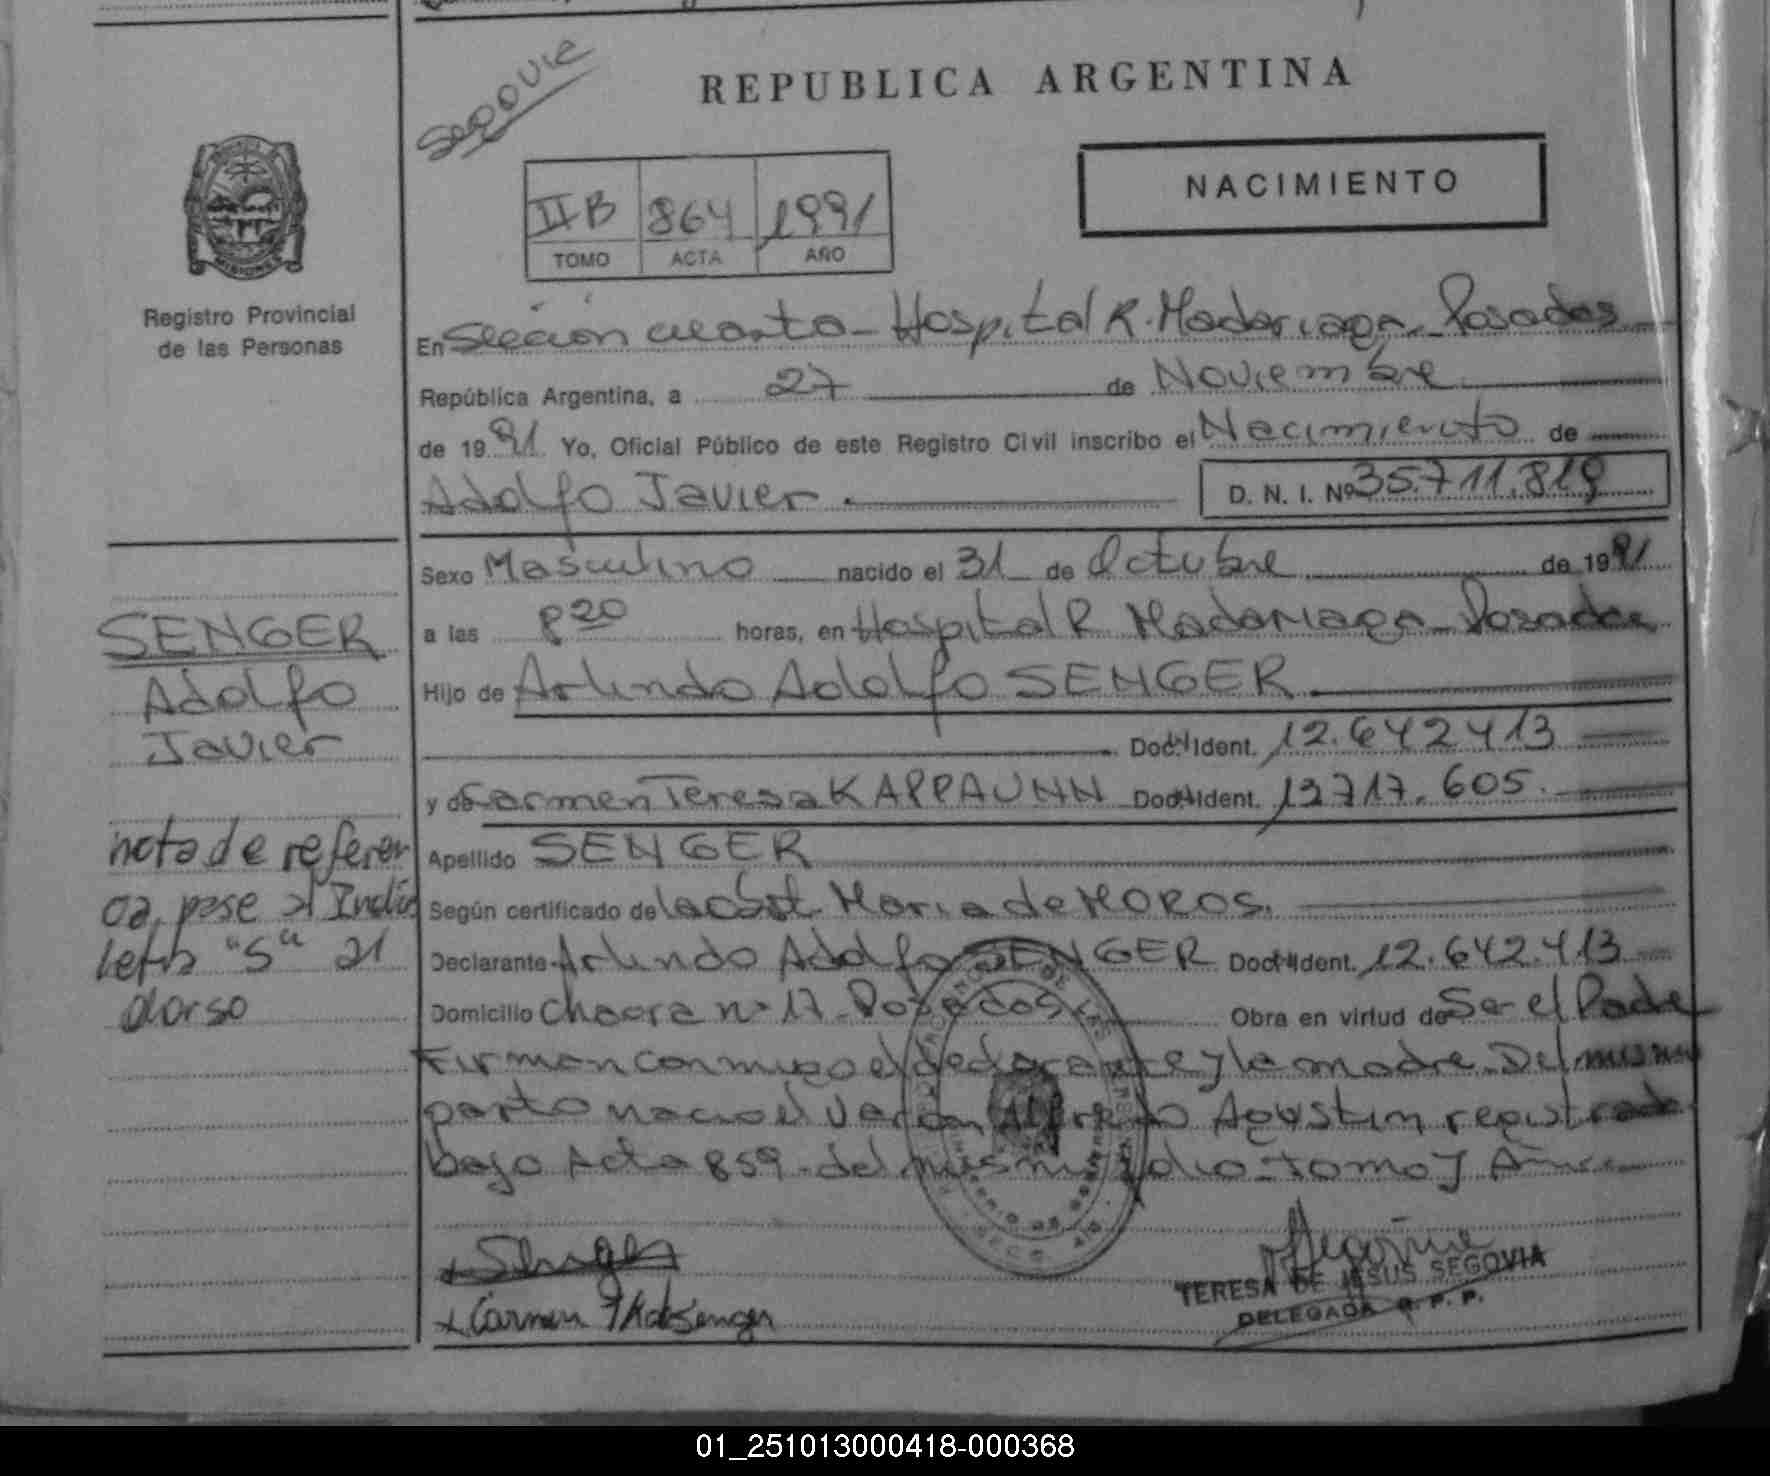 Segovie
REPUBLICA ARGENTINA
NACIMIENTO
IIB 864 1991
TOMO ACTA AÑO
MISIONES
Registro Provincial
de las Personas
En Sección cuarta - Hospital R. Madariaga - Posadas
República Argentina, a 27 de Noviembre
de 1991 Yo, Oficial Público de este Registro Civil inscribo el Nacimiento de
Adolfo Javier . D. N. I. Nº 35.711.819
Sexo Masculino nacido el 31 de Octubre de 1991
a las 8 20 horas, en Hospital R Madariaga - Posadas
Hijo de Arlindo Adolfo SENGER
Doc. Ident. 12.642413
y de Carmen Teresa KAPPAUNN Doc. Ident. 13717.605.
Apellido SENGER
Según certificado de la Obst. Maria de MOROS.
Declarante Arlindo Adolfo SENGER Doc. Ident. 12.642.413
Domicilio Chacra nº 17 - Posadas Obra en virtud de Ser el Padre
Firman conmigo el declarante y la madre - Del mismo
parto nacio el varon Alfredo Agustin registrado
bajo Acta 859 - del mismo dia - tomo y Año
SENGER
Adolfo
Javier
nota de referen
cia, pase al Indice
Letra "S" al
dorso
Carmen
TERESA DE JESUS SEGOVIA
DELEGADA R. P. P.
01_251013000418-000368